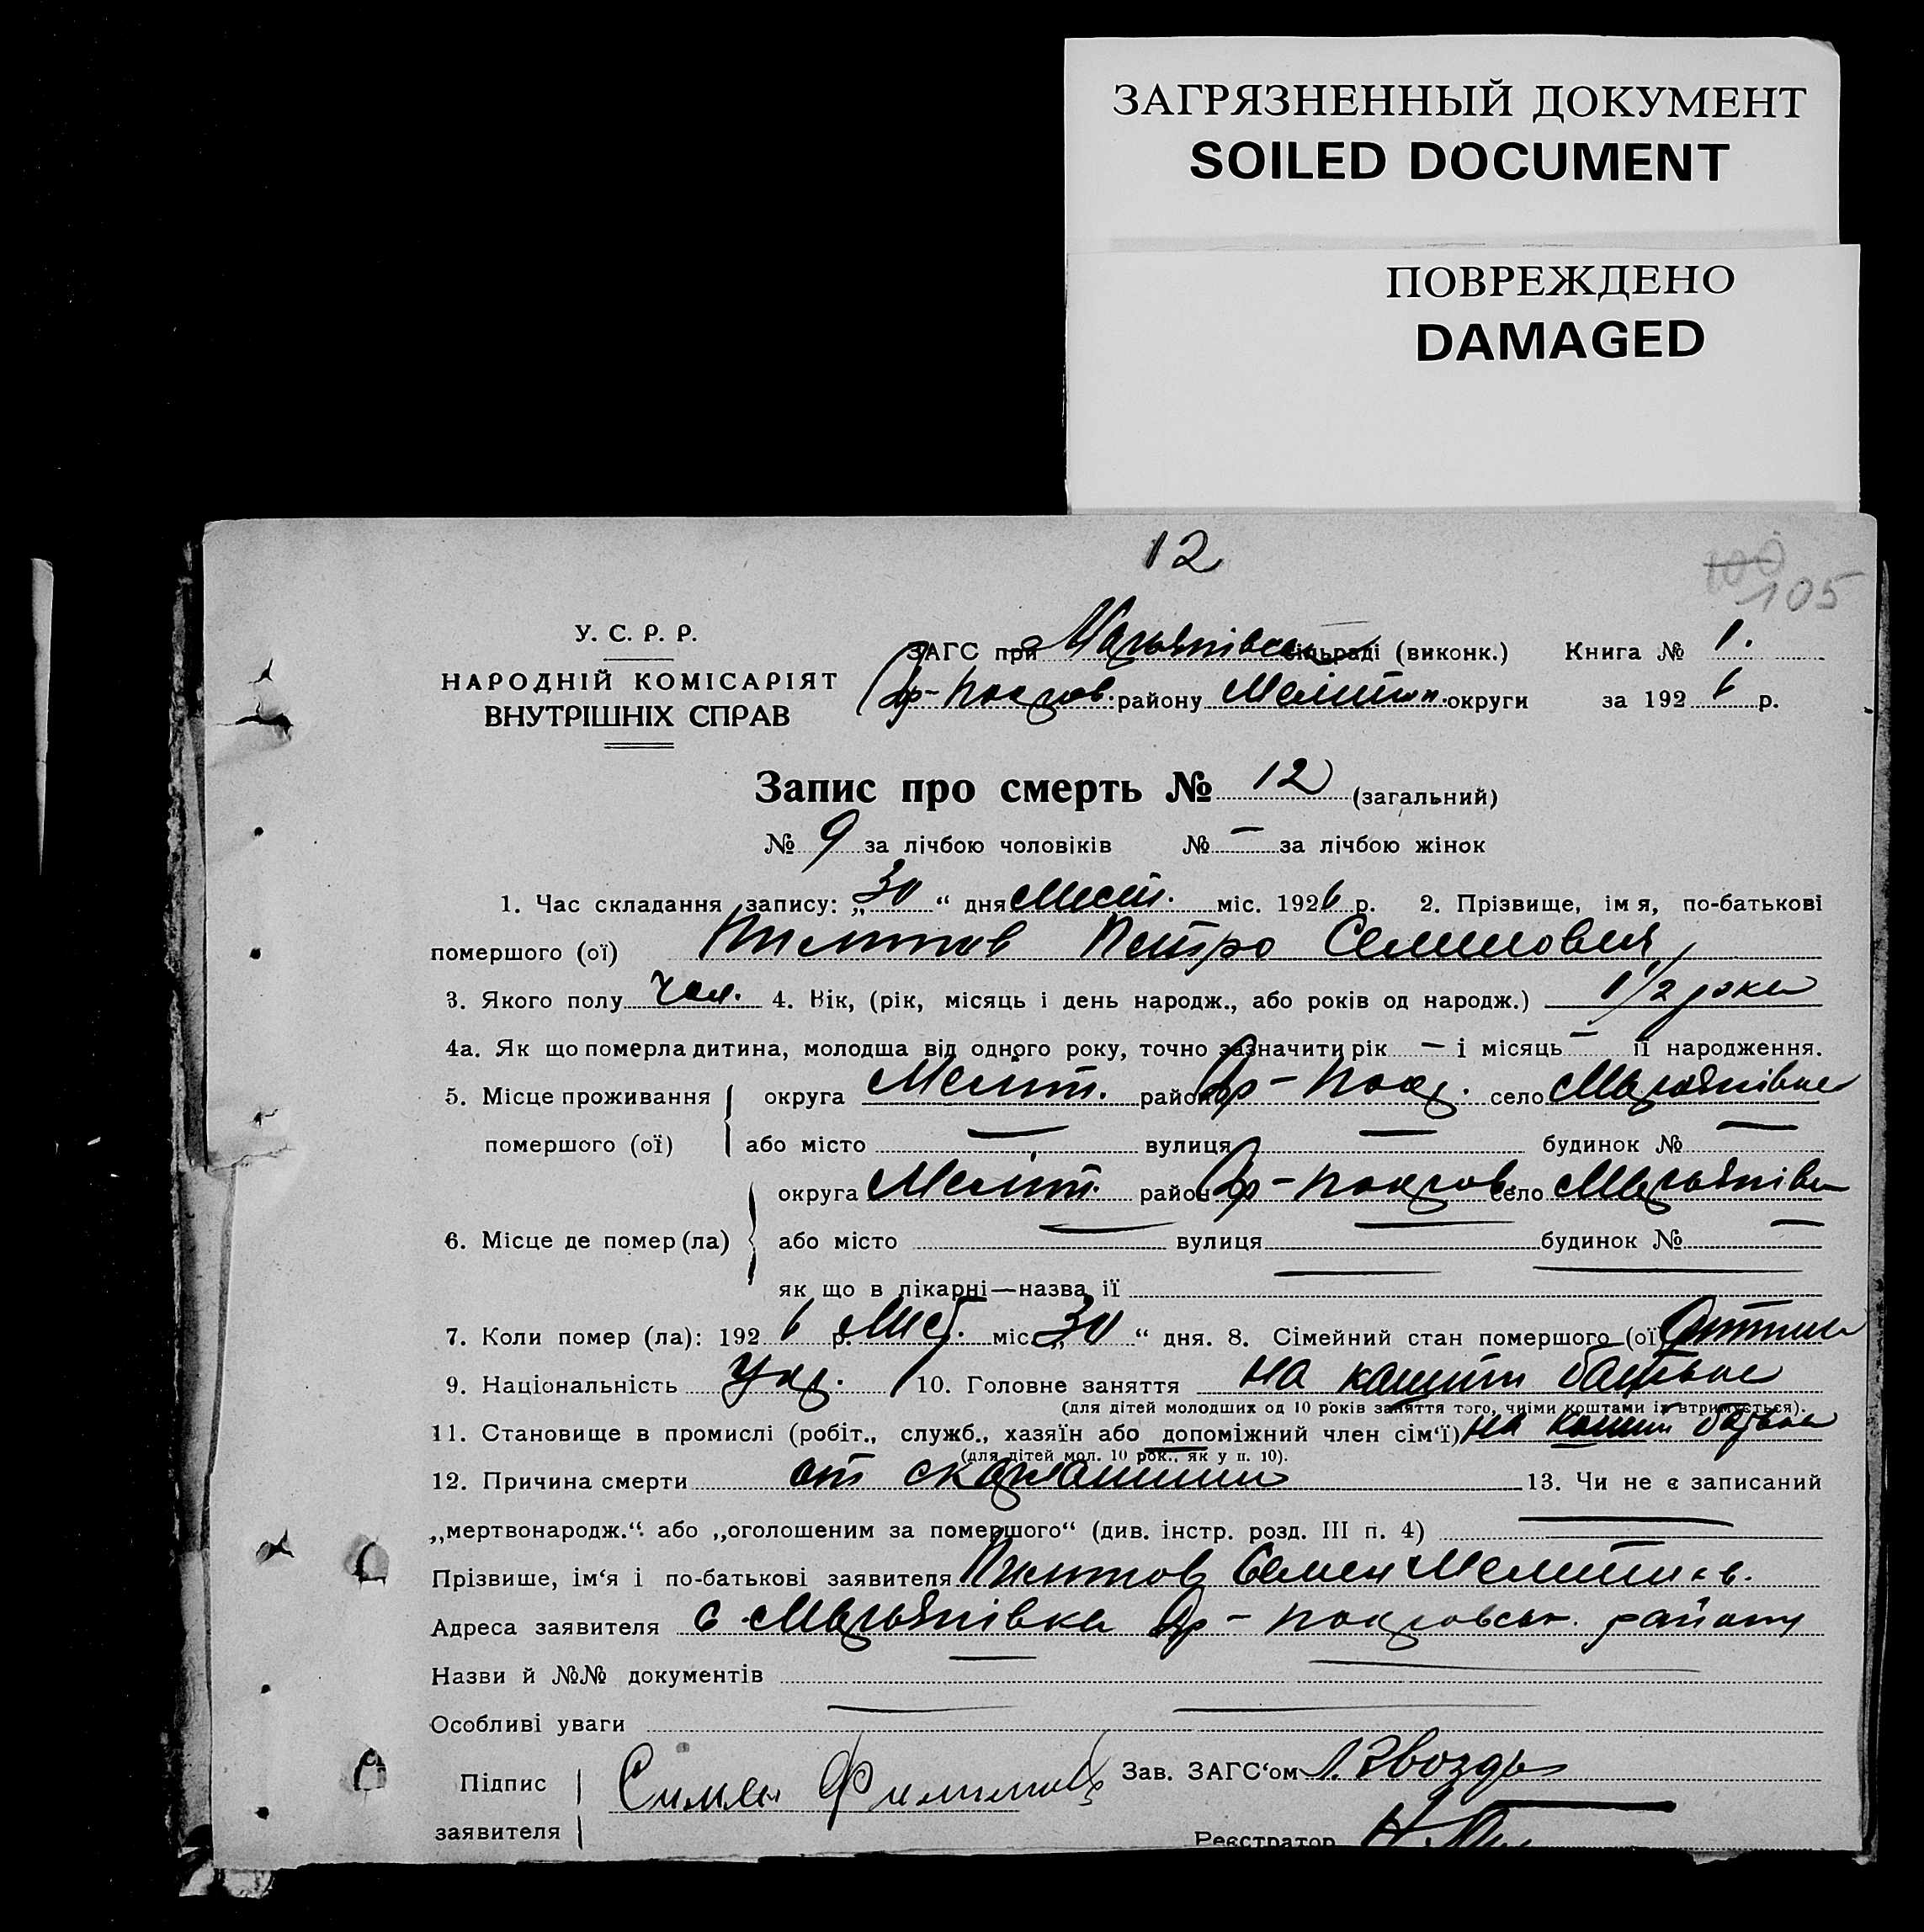 ЗАГРЯЗНЕННЫЙ ДОКУМЕНТ
SOILED DOCUMENT
ПОВРЕЖДЕНО
DAMAGED
12
100
105
У. С. Р. Р.
НАРОДНІЙ КОМІСАРІЯТ
ВНУТРІШНІХ СПРАВ
ЗАГС при сільраді (виконк.) Книга № 1.
Др-Покров. району Меліт. округи за 1926 р.
Запис про смерть № 12 (загальний)
№ 9 за лічбою чоловіків № — за лічбою жінок
1. Час складання запису: „30“ дня міс. 1926 р. 2. Прізвище, імя, по-батькові
помершого (ої) Петро Семенович
3. Якого полу чол. 4. Вік, (рік, місяць і день народж., або років од народж.) 1 1/2 роки
4а. Як що померла дитина, молодша від одного року, точно зазначити рік — і місяць — її народження.
5. Місце проживання округа Меліт. район Др-Покр. село
помершого (ої) або місто — вулиця — будинок № —
округа Меліт. район Др-Покров. село
6. Місце де помер (ла) або місто — вулиця — будинок № —
як що в лікарні—назва її —
7. Коли помер (ла): 1926 р. міс. „30“ дня. 8. Сімейний стан помершого (ої)
9. Національність Укр. 10. Головне заняття на кошти батька
(для дітей молодших од 10 років заняття того, чиїми коштами їх втримується).
11. Становище в промислі (робіт., служб., хазяїн або допоміжний член сім‘ї) на кошти батька
(для дітей мол. 10 рок., як у п. 10).
12. Причина смерти от скарлатини 13. Чи не є записаний
„мертвонародж.“ або „оголошеним за помершого“ (див. інстр. розд. III п. 4) —
Прізвише, ім‘я і по-батькові заявителя Семен
Адреса заявителя с. Др-Покровськ. району
Назви й №№ документів —
Особливі уваги —
Підпис
заявителя
Зав. ЗАГС‘ом
Реєстратор